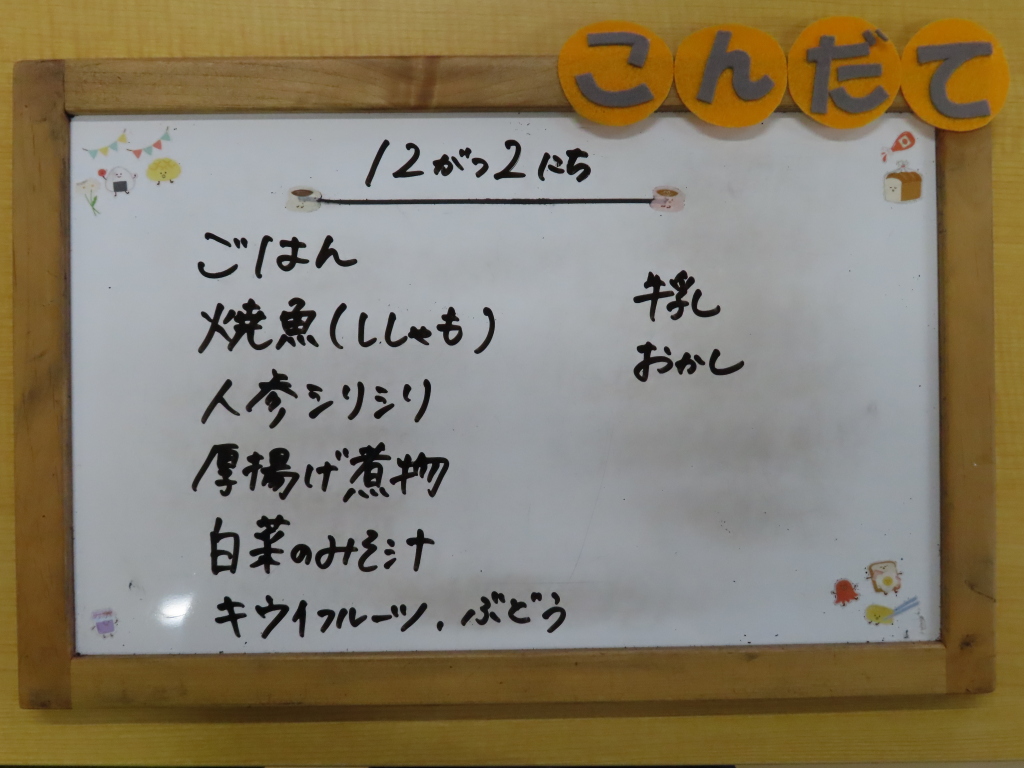 こんだて
12がつ2にち
ごはん
焼魚(ししゃも)
人参シリシリ
厚揚げ煮物
白菜のみそ汁
キウイフルーツ.ぶどう
牛乳
おかし